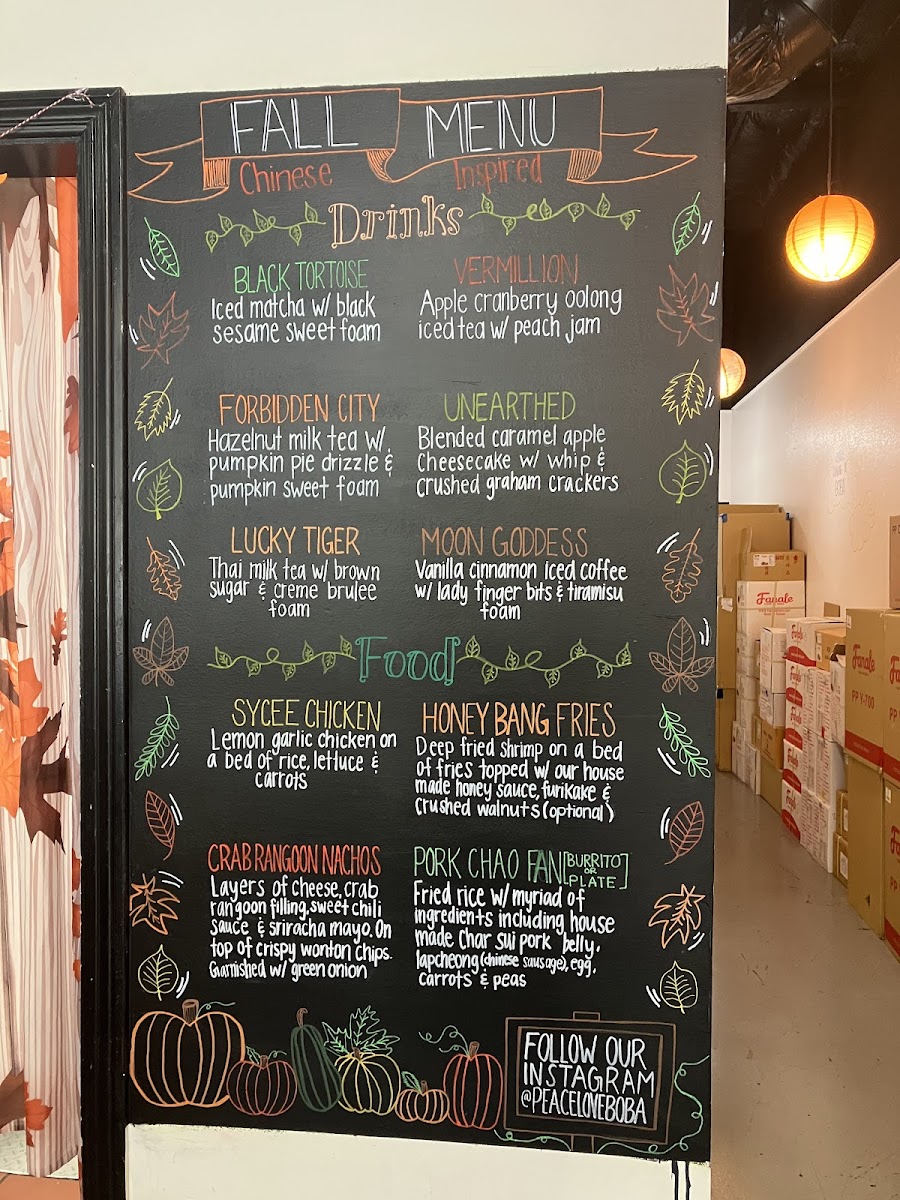 FALL MENU
Chinese Inspired
Drinks
BLACK TORTOISE
Iced matcha w/ black
sesame sweet foam
VERMILLION
Apple cranberry oolong
iced tea w/ peach jam
FORBIDDEN CITY
Hazelnut milk tea w/
pumpkin pie drizzle &
pumpkin sweet foam
UNEARTHED
Blended caramel apple
Cheesecake w/ whip &
crushed graham crackers
LUCKY TIGER
Thai milk tea w/ brown
sugar & creme brulee
foam
MOON GODDESS
Vanilla cinnamon iced coffee
w/ lady finger bits & tiramisu
foam
Food
SYCEE CHICKEN
Lemon garlic chicken on
a bed of rice, lettuce &
carrots
HONEY BANG FRIES
Deep fried shrimp on a bed
of fries topped w/ our house
made honey sauce, furikake &
crushed walnuts (optional)
CRAB RANGOON NACHOS
Layers of cheese, crab
rangoon filling, sweet chili
sauce & sriracha mayo. On
top of crispy wonton chips.
Garnished w/ green onion
PORK CHAO FAN [BURRITO
OR
PLATE]
Fried rice w/ myriad of
ingredients including house
made Char Sui pork belly,
lapcheong (chinese sausage), egg,
carrots & peas
FOLLOW OUR
INSTAGRAM
@PEACELOVEBOBA
Fanale
Fanale
Fanale
PP Y-700